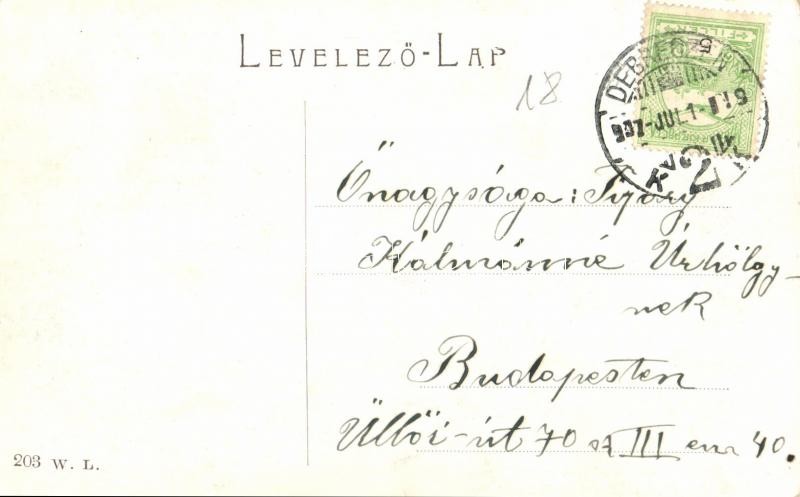 LEVELEZŐ-LAP
18
FILLÉR
5
DEBRECZEN
907-JUL.1-
2
Őnagysága: Tyáry
Kálmánné Úrhölgy-
nek
Budapesten
Üllői-út 70 sz III em 40.
203 W. L.